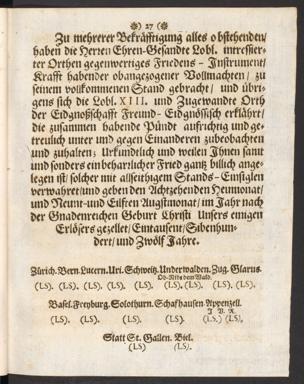 ) 27 (
Zu mehrerer Bekräfftigung alles obstehenden/
haben die Herren Ehren-Gesandte Lobl. interessier-
ter Orthen gegenwertiges Friedens-Instrument/
Krafft habender obangezogener Vollmachten/ zu
seinem vollkommenen Stand gebracht/ und übri-
gens sich die Lobl. XIII. und Zugewandte Orth
der Eidgnoßschafft Freund-Eidgnössisch erklährt/
die zusammen habende Pündt aufrichtig und ge-
treulich unter und gegen Einanderen zubeobachten
und zuhalten; Urkundlich und weilen Ihnen samt
und sonders ein beharrlicher Fried gantz billich ange-
legen ist/ solcher mit allseithigem Stands-Einsiglen
verwahret/ und geben den Achtzehenden Heumonat/
und Neunt- und Eilften Augstmonat/ im Jahr nach
der Gnadenreichen Geburt Christi Unsers einigen
Erlösers gezellet/ Eintausent/ Sibenhun-
dert/ und Zwölf Jahre.
Zürich. Bern. Lucern. Uri. Schweitz. Underwalden. Zug. Glarus.
Ob- Nids dem Wald.
(LS). (LS). (LS). (LS). (LS). (LS). (LS). (LS). (LS).
Basel. Freyburg. Solothurn. Schafhausen Appenzell.
J. V. R.
(LS). (LS). (LS). (LS). (LS.) (LS).
Statt St. Gallen. Biel.
(LS) (LS).